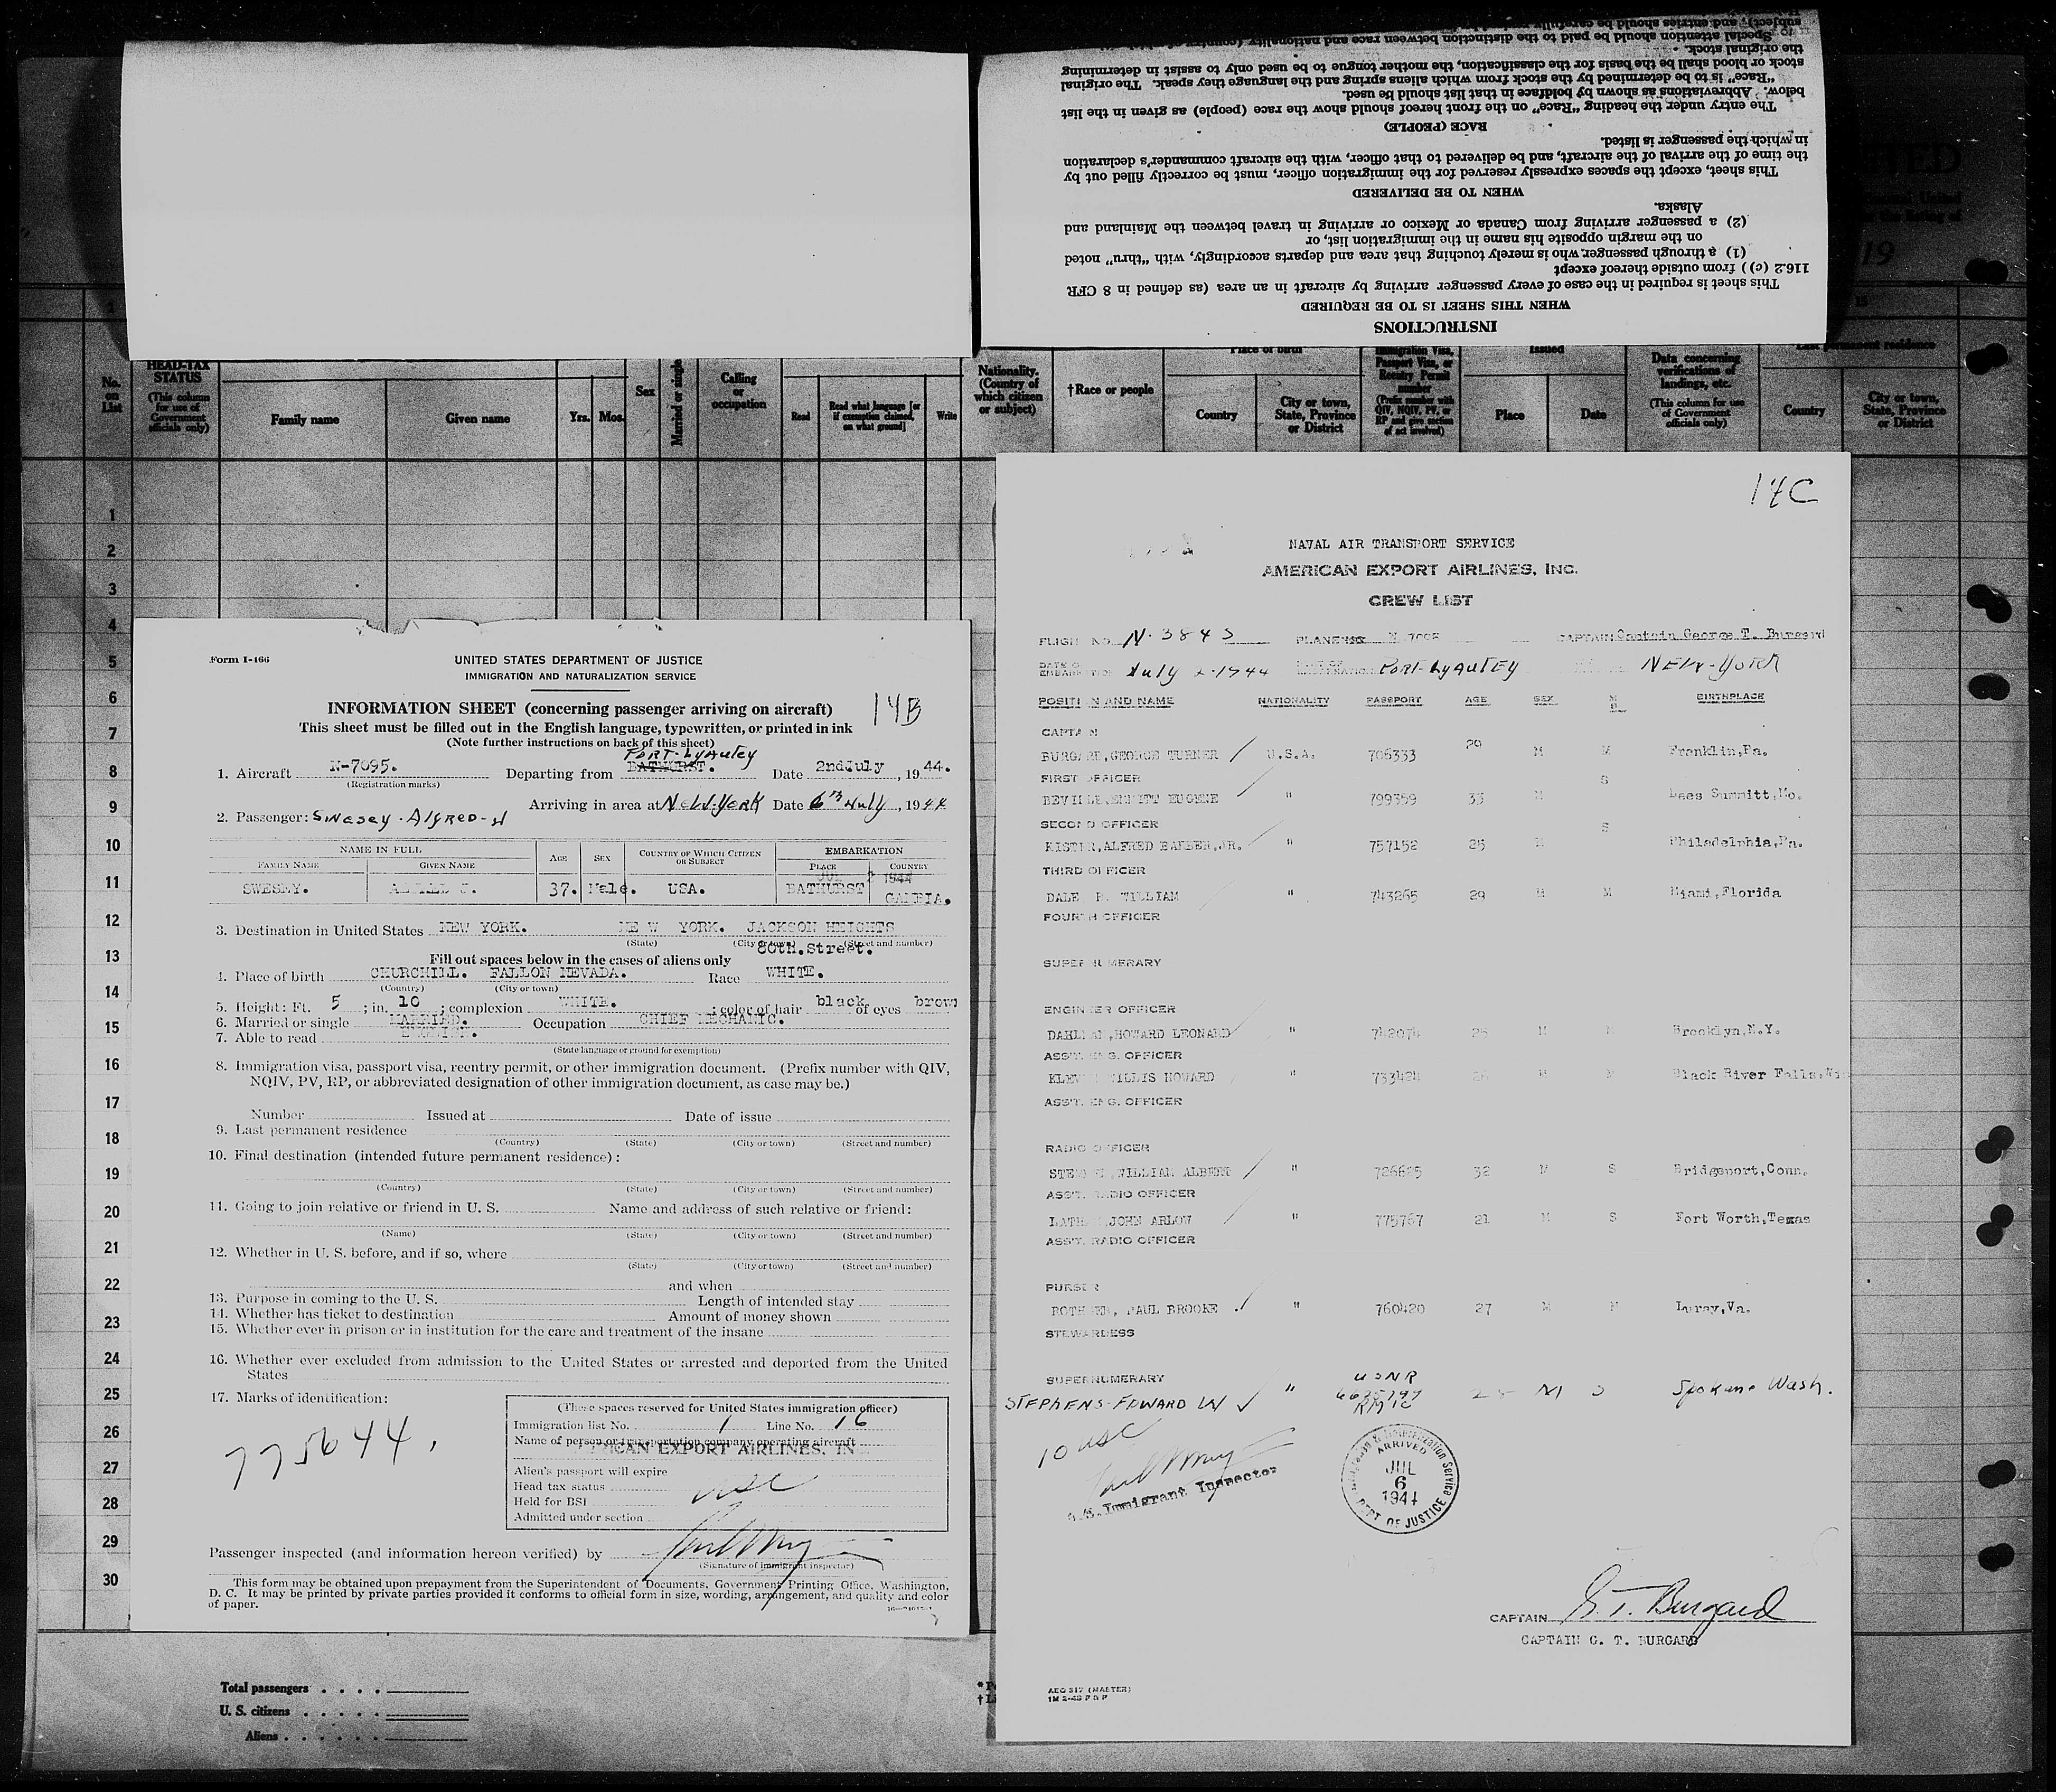 INSTRUCTIONS
WHEN THIS SHEET IS TO BE REQUIRED
This sheet is required in the case of every passenger arriving by aircraft in an area (as defined in 8 CFR
116.2 (c)) from outside thereof except
(1) a through passenger who is merely touching that area and departs accordingly, with "thru" noted
on the margin opposite his name in the immigration list, or
(2) a passenger arriving from Canada or Mexico or arriving in travel between the Mainland and
Alaska.
WHEN TO BE DELIVERED
This sheet, except the spaces expressly reserved for the immigration officer, must be correctly filled out by
the time of the arrival of the aircraft, and be delivered to that officer, with the aircraft commander's declaration
in which the passenger is listed.
RACE (PEOPLE)
The entry under the heading "Race" on the front hereof should show the race (people) as given in the list
below. Abbreviations as shown by boldface in that list should be used.
"Race" is to be determined by the stock from which aliens spring and the language they speak. The original
stock or blood shall be the basis for the classification, the mother tongue to be used only to assist in determining
the original stock.
Special attention should be paid to the distinction between race and nationality
subject), and entries should be carefully
19
No. on List
HEAD-TAX STATUS
(This column for use of Government officials only)
Family name
Given name
Yrs. Mos.
Sex
Married or single
Calling or occupation
Read
Read what language [or if exemption claimed, on what ground]
Write
Nationality. (Country of which citizen or subject)
†Race or people
Place of birth
Country
City or town, State, Province or District
Immigration Visa, Passport Visa, or Reentry Permit number
(Prefix number with QIV, NQIV, PV, or RP and give section of act involved)
Issued
Place
Date
Data concerning verifications of landings, etc.
(This column for use of Government officials only)
Last permanent residence
Country
City or town, State, Province or District
1
2
3
4
5
6
7
8
9
10
11
12
13
14
15
16
17
18
19
20
21
22
23
24
25
26
27
28
29
30
Form I-466
UNITED STATES DEPARTMENT OF JUSTICE
IMMIGRATION AND NATURALIZATION SERVICE
INFORMATION SHEET (concerning passenger arriving on aircraft)
14B
This sheet must be filled out in the English language, typewritten, or printed in ink
(Note further instructions on back of this sheet)
PORT-LyAUTEY
1. Aircraft N-7095. Departing from BATHURST. Date 2ndJuly, 1944.
(Registration marks)
Arriving in area at NEW-YORK Date 6th July, 1944
2. Passenger: Swesey-Alfred-J
NAME IN FULL
FAMILY NAME
GIVEN NAME
AGE
SEX
COUNTRY OF WHICH CITIZEN OR SUBJECT
EMBARKATION
PLACE
COUNTRY
JUL 2 1944
SWESEY. J. 37. Male. USA. BATHURST GAMBIA.
3. Destination in United States NEW YORK. NEW YORK. JACKSON HEIGHTS
(State) (City or town) (Street and number)
80th.Street.
Fill out spaces below in the cases of aliens only
4. Place of birth CHURCHILL. FALLON NEVADA. Race WHITE.
(Country) (City or town)
5. Height: Ft. 5; in. 10; complexion WHITE.; color of hair black of eyes brown
6. Married or single MARRIED. Occupation CHIEF MECHANIC.
7. Able to read
(State language or ground for exemption)
8. Immigration visa, passport visa, reentry permit, or other immigration document. (Prefix number with QIV,
NQIV, PV, RP, or abbreviated designation of other immigration document, as case may be.)
Number Issued at Date of issue
9. Last permanent residence
(Country) (State) (City or town) (Street and number)
10. Final destination (intended future permanent residence):
(Country) (State) (City or town) (Street and number)
11. Going to join relative or friend in U. S. Name and address of such relative or friend:
(Name) (State) (City or town) (Street and number)
12. Whether in U. S. before, and if so, where
(State) (City or town) (Street and number)
and when
13. Purpose in coming to the U. S. Length of intended stay
14. Whether has ticket to destination Amount of money shown
15. Whether ever in prison or in institution for the care and treatment of the insane
16. Whether ever excluded from admission to the United States or arrested and deported from the United
States
17. Marks of identification:
775644.
(These spaces reserved for United States immigration officer)
Immigration list No. 1 Line No. 16
Name of person or transportation company operating aircraft
AMERICAN EXPORT AIRLINES, IN
Alien's passport will expire
Head tax status usc
Held for BSI
Admitted under section
Passenger inspected (and information hereon verified) by
(Signature of immigrant inspector)
This form may be obtained upon prepayment from the Superintendent of Documents, Government Printing Office, Washington,
D. C. It may be printed by private parties provided it conforms to official form in size, wording, arrangement, and quality and color
of paper.
Total passengers
U. S. citizens
Aliens
14C
NAVAL AIR TRANSPORT SERVICE
AMERICAN EXPORT AIRLINES, INC.
CREW LIST
FLIGHT NO. N-3843 PLANE N 7095 CAPTAIN Captain George T. Burgard
DATE OF EMBARKATION July 2-1944 PORT-LyAUTEY NEW-YORK
POSITION AND NAME NATIONALITY PASSPORT AGE SEX BIRTHPLACE
CAPTAIN
BURGARD,GEORGE TURNER U.S.A. 706333 29 M M Franklin,Pa.
FIRST OFFICER
BEVILLE,EMMITT EUGENE " 799359 33 M S Lees Summitt,Mo.
SECOND OFFICER
KISTER,ALFRED BARBER,JR. " 757152 25 M S Philadelphia,Pa.
THIRD OFFICER
DALE R. WILLIAM " 743265 29 M M Miami,Florida
FOURTH OFFICER
SUPERNUMERARY
ENGINEER OFFICER
HOWARD LEONARD " 26 M M Brooklyn,N.Y.
ASS'T. ENG. OFFICER
WILLIS HOWARD " 733424 M M Black River Falls,Wis
ASS'T. ENG. OFFICER
RADIO OFFICER
WILLIAM ALBERT " 726625 32 M S Bridgeport,Conn.
ASS'T. RADIO OFFICER
JOHN ARLOW " 775767 21 M S Fort Worth,Texas
ASS'T. RADIO OFFICER
PURSER
PAUL BROOKE " 760420 27 M M Luray,Va.
STEWARDESS
SUPERNUMERARY
USNR
STEPHENS-EDWARD W " 28 M S Spokane Wash.
RM1C
10 usc
U.S. Immigrant Inspector
Immigration & Naturalization Service
ARRIVED
JUL
6
1944
DEPT OF JUSTICE
CAPTAIN G. T. Burgard
CAPTAIN G. T. BURGARD
AEO 317 (MASTER)